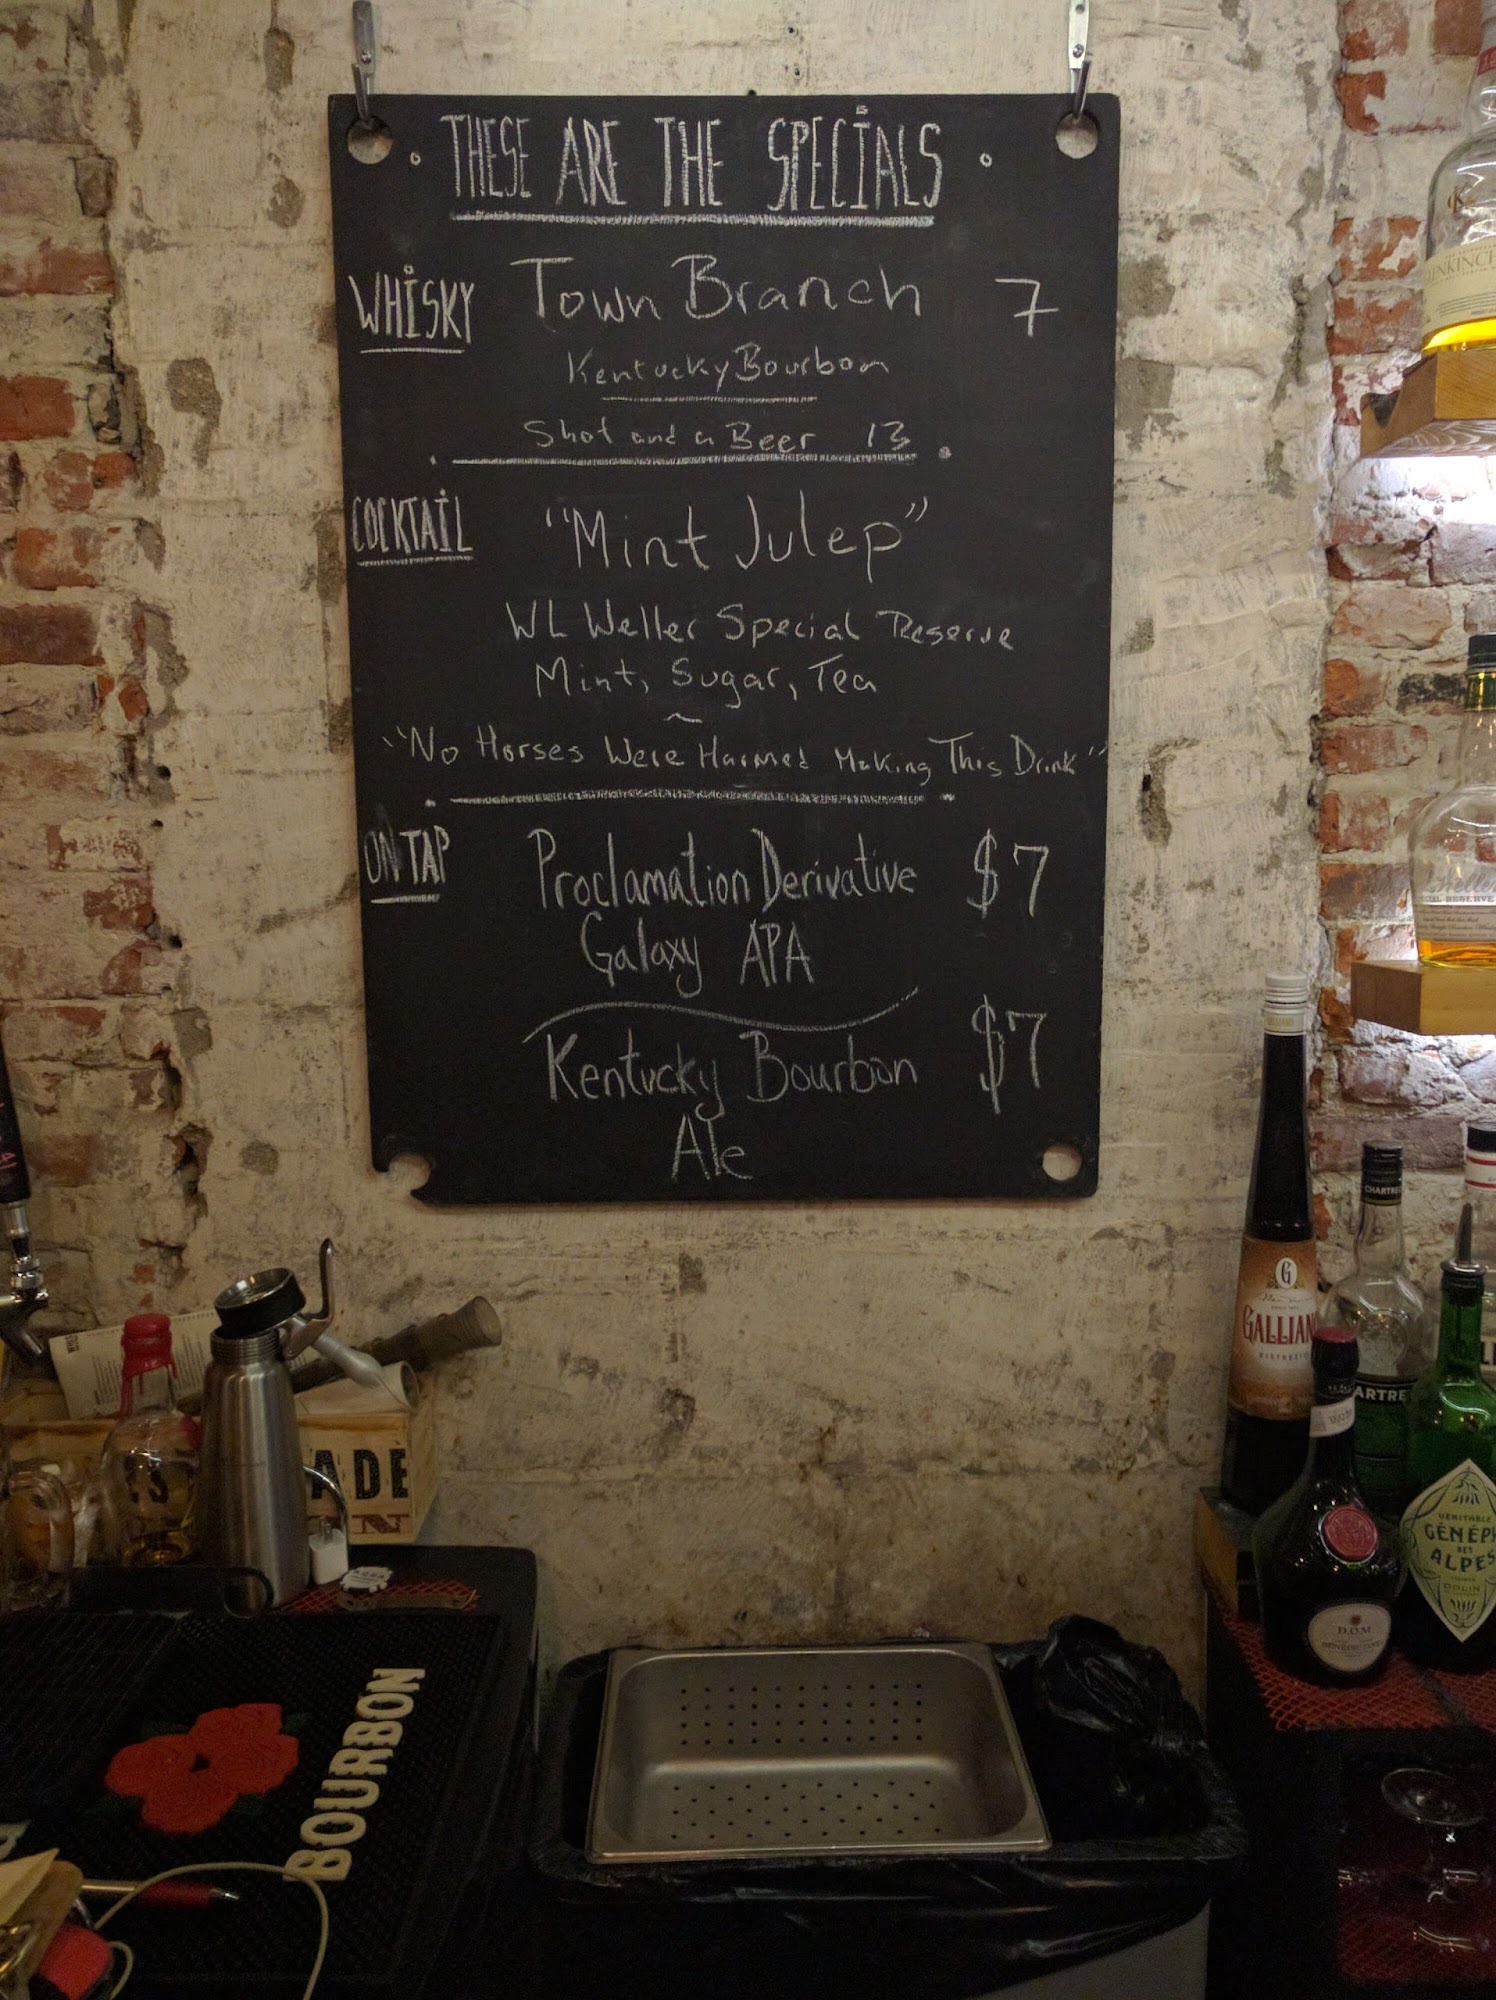 THESE ARE THE SPECIALS
WHISKY Town Branch 7
Kentucky Bourbon
Shot and a Beer 13
COCKTAIL "Mint Julep"
WL Weller Special Reserve
Mint, Sugar, Tea
"No Horses Were Harmed Making This Drink"
ON TAP Proclamation Derivative $7
Galaxy APA
Kentucky Bourbon $7
Ale
CHARTRE
G
GALLIAN
ARTRE
GÉNÉP
DES
ALPES
D.O.M
BÉNÉDICTINE
ADE
BOURBON